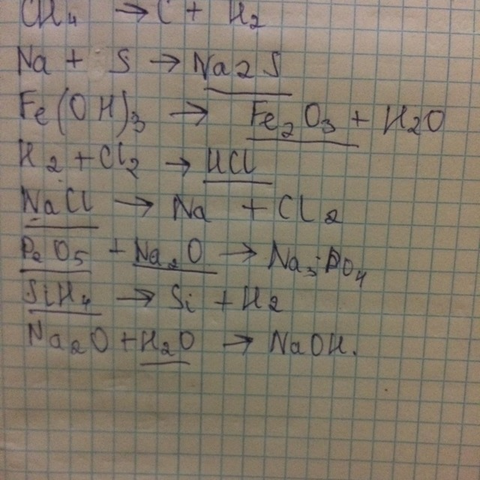 CH₄ → C + H₂
Na + S → Na2S
Fe(OH)₃ → Fe₂O₃ + H₂O
H₂ + Cl₂ → HCl
NaCl → Na + Cl₂
P₂O₅ + Na₂O → Na₃PO₄
SiH₄ → Si + H₂
Na₂O + H₂O → NaOH.